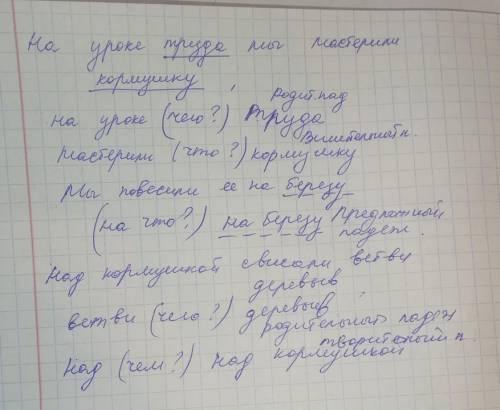 На уроке труда мы мастерили
кормушку
Родит. пад
на уроке (чего?) труда
Винительный п.
мастерили (что?) кормушку
Мы повесили ее на березу
(на что?) на березу Предложный
падеж.
Над кормушкой свисали ветви
деревьев
ветви (чего?) деревьев
Родительный падеж
творительный п.
Над (чем?) над кормушкой